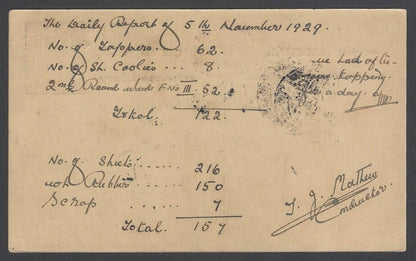 The Daily Report of 5th November 1929.
No. of Tappers.... 62.
No. of Sh. Coolies.... 8
2nd Round F No III .... 52.
Total. 122.
Lack of
tapping
a day.
No. of Sheets..... 216
Rubber...... 150
Scrap ...... 7
Total. 157
T. J. Mathew
Conductor.